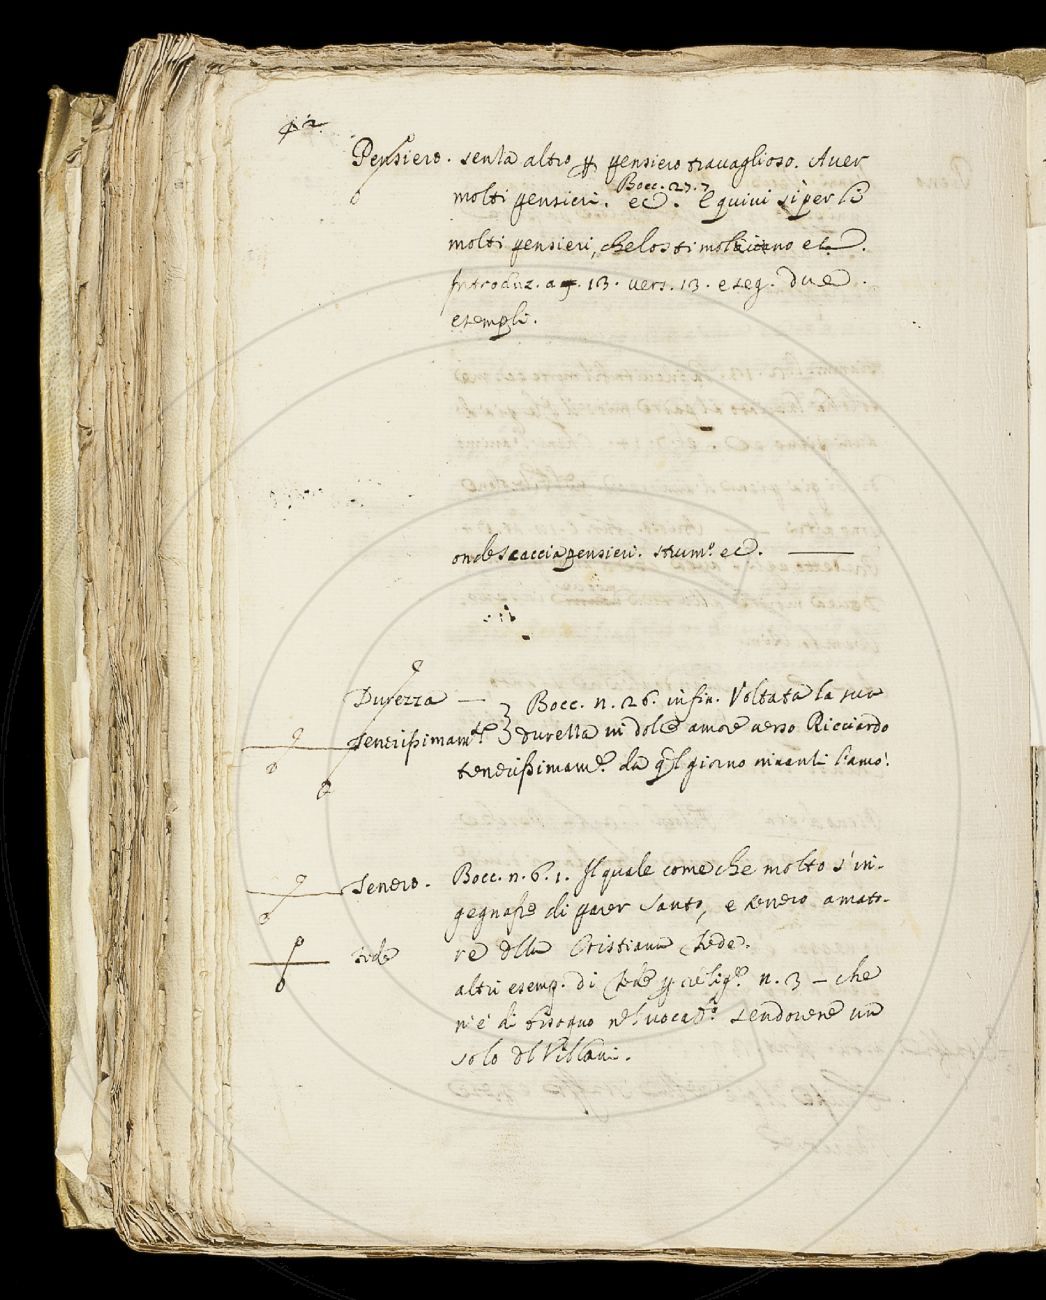 42
Pensiero. senza altro ꝑ pensiero travaglioso. Aver
molti pensieri. Bocc. 27.7 ec. E quivi si per li
molti pensieri, che lo stimolavano ec.
Introduz. a 13. vers. 13. e seg. due
esempli.
onde Scacciapensieri. strumo. ec. —
Durezza — } Bocc. n. 26. in fin. Voltata la sua
Tenerissimamte. } durezza in dolce amore verso Ricciardo
tenerissimame. da ql giorno innanzi l'amò.
Tenero. Bocc. n. 6. 1. Il quale come che molto s'in-
gegnasse di parer santo, e tenero amato-
fede re dlla Cristiana fede.
altri esemp. di fede ꝑ religne. n. 3 — che
n'è di bisogno nel vocabo. sendovene un
solo dl Villani.